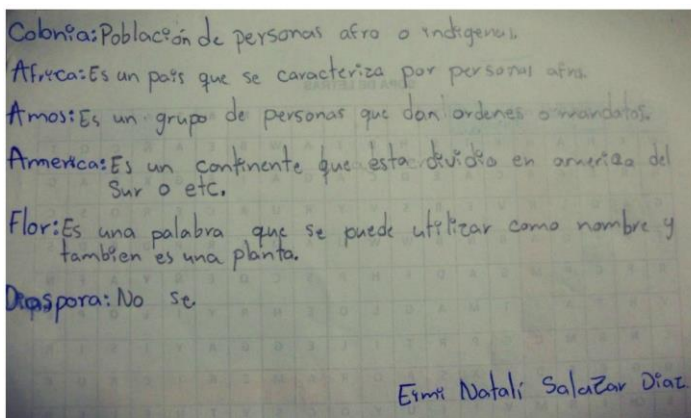 Colonia: Población de personas afro o indigenas.
Africa: Es un pais que se caracteriza por personas afro.
Amos: Es un grupo de personas que dan ordenes o mandatos.
America: Es un continente que esta dividio en america del
Sur o etc.
Flor: Es una palabra que se puede utilizar como nombre y
tambien es una planta.
Diaspora: No se
Natalí Salazar Diaz